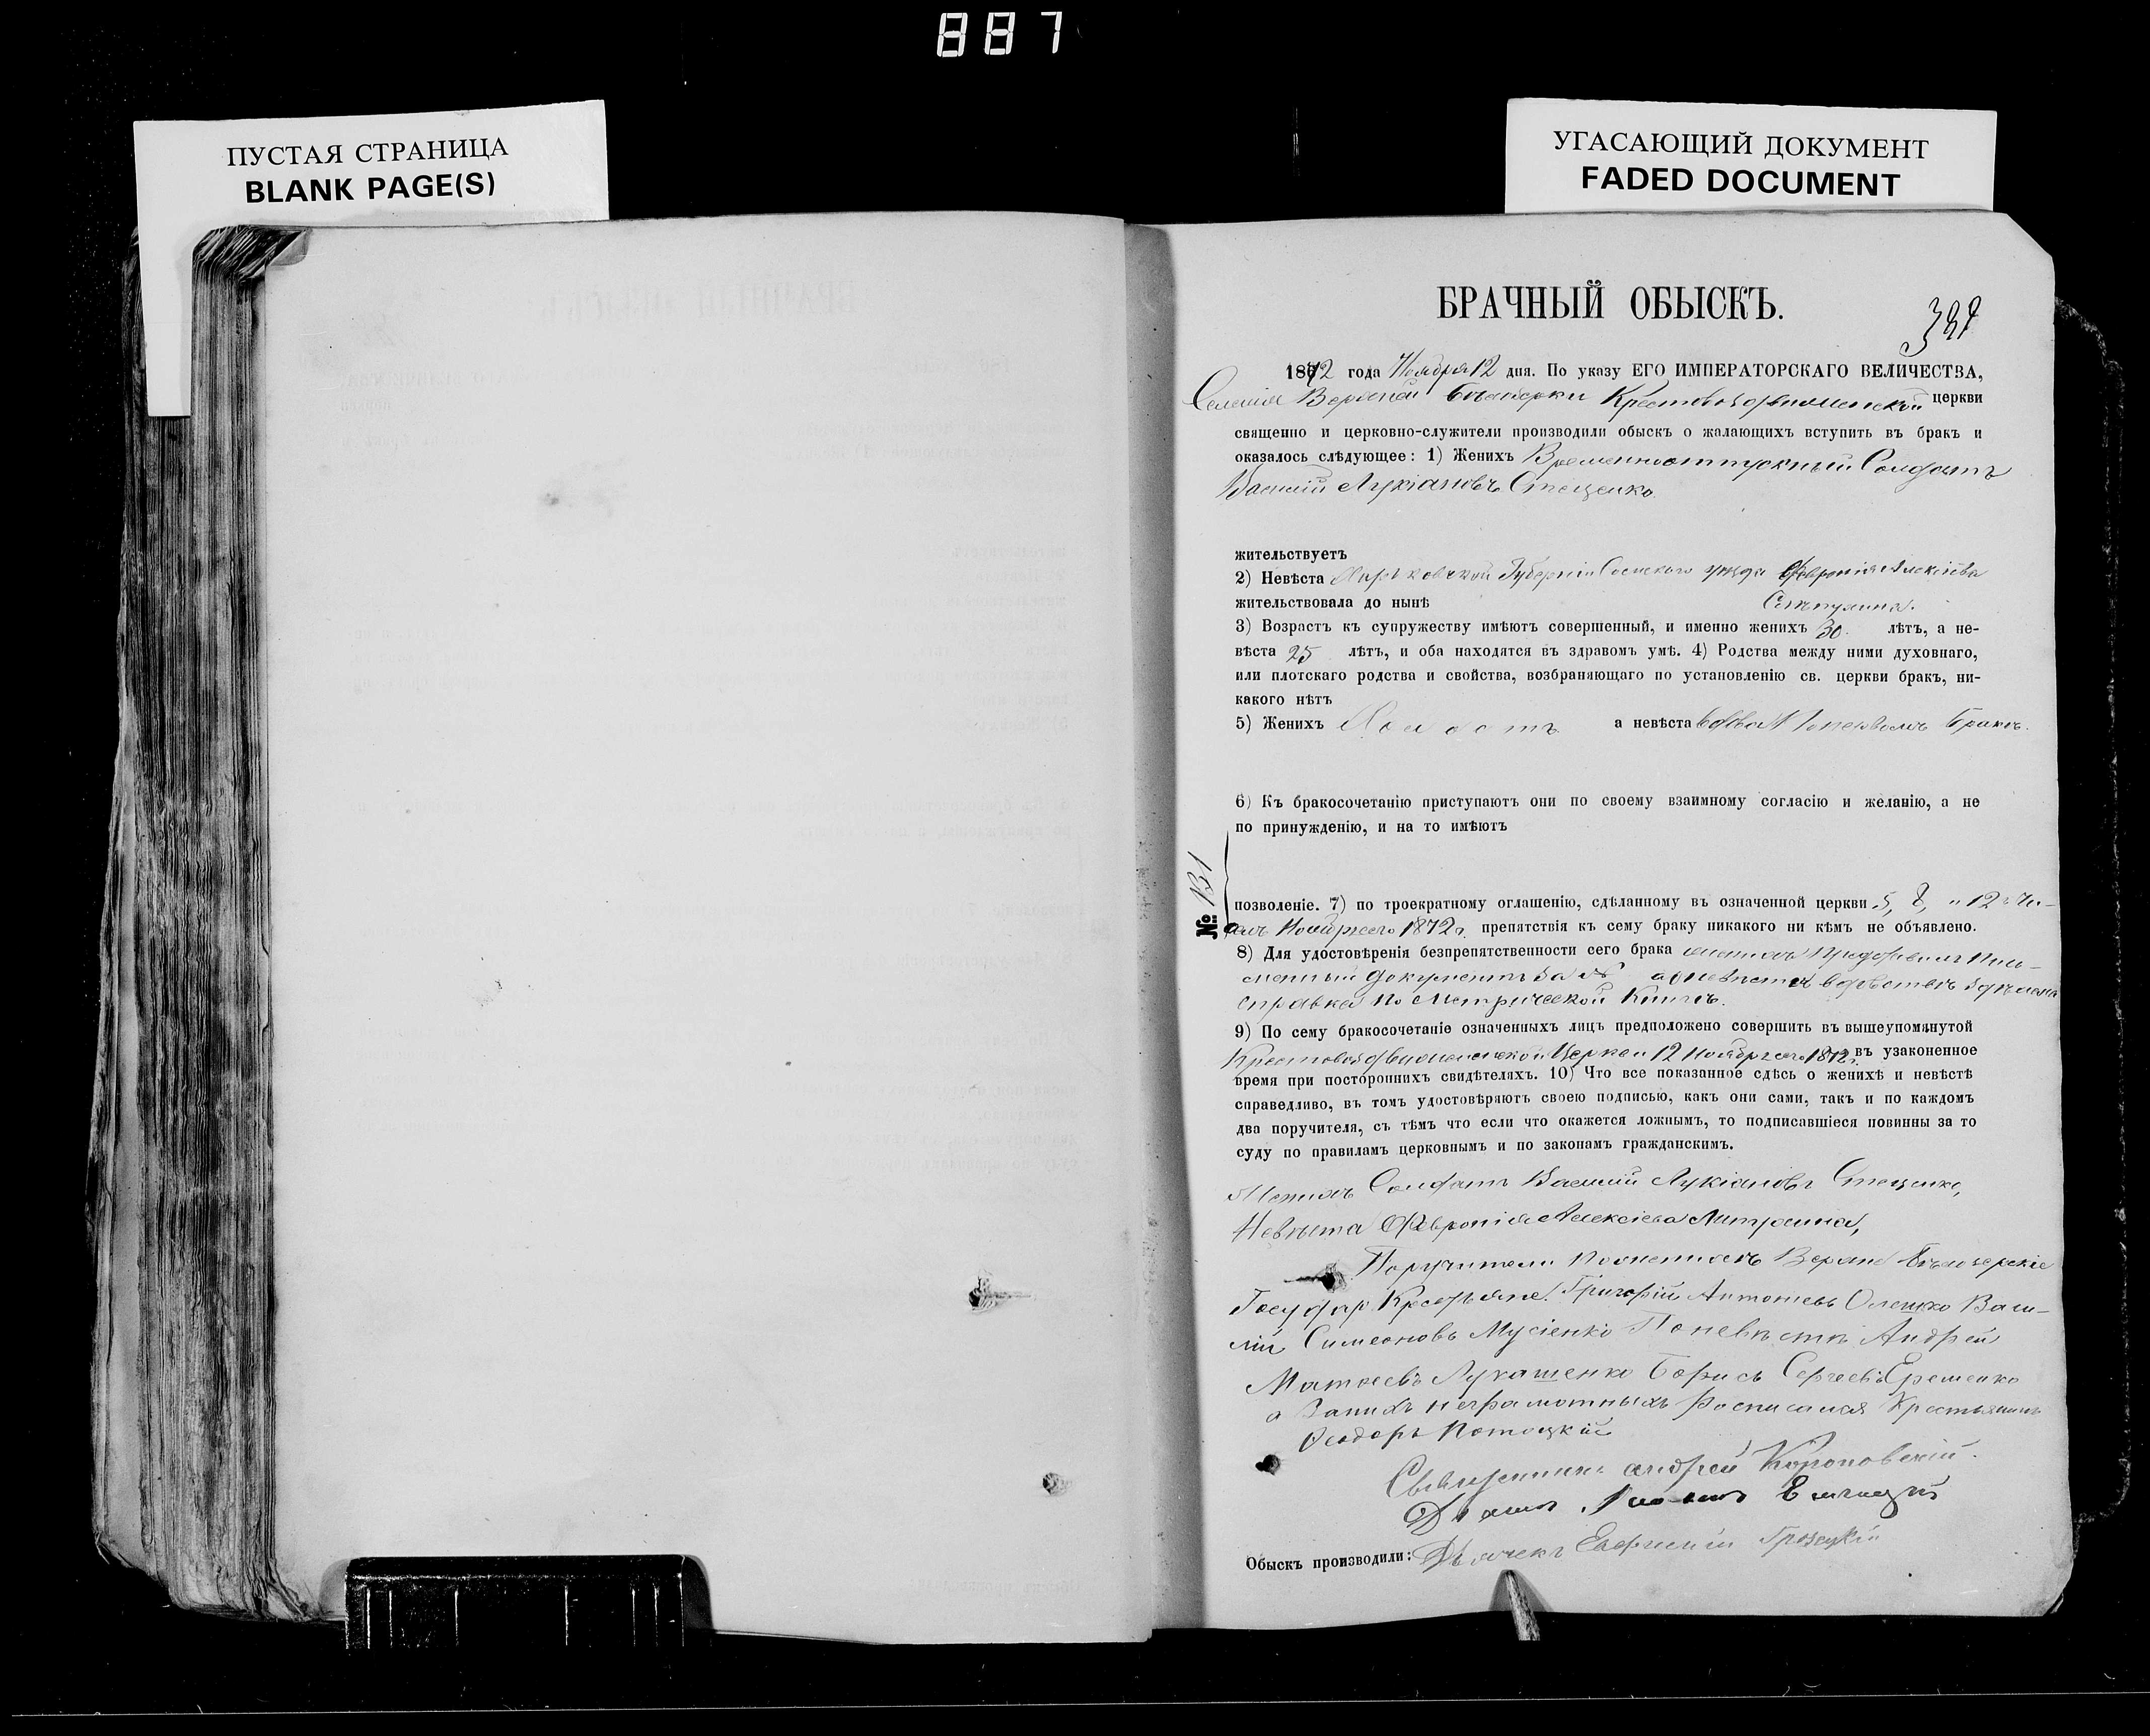 887
ПУСТАЯ СТРАНИЦА
BLANK PAGE(S)
УГАСАЮЩИЙ ДОКУМЕНТ
FADED DOCUMENT
БРАЧНЫЙ ОБЫСКЪ.
1872 года Ноября 12 дня. По указу ЕГО ИМПЕРАТОРСКАГО ВЕЛИЧЕСТВА,
Селенія Верхней Крестовоздвиженской церкви
священно и церковно-служители производили обыскъ о жалающихъ вступить въ бракъ и
оказалось слѣдующее: 1) Женихъ Временноотпускный Солдатъ
Василій Лукіановъ Стеценко
жительствуетъ
2) Невѣста Харьковской Губерніи уѣзда Февронія Алексіева
жительствовала до нынѣ
3) Возрастъ къ супружеству имѣютъ совершенный, и именно женихъ 30 лѣтъ, а не-
вѣста 25 лѣтъ, и оба находятся въ здравомъ умѣ. 4) Родства между ними духовнаго,
или плотскаго родства и свойства, возбраняющаго по установленію св. церкви бракъ, ни-
какого нѣтъ
5) Женихъ Холостъ а невѣста вдова По первомъ бракѣ.
6) Къ бракосочетанію приступаютъ они по своему взаимному согласію и желанію, а не
по принужденію, и на то имѣютъ
№
позволеніе. 7) по троекратному оглашенію, сдѣланному въ означенной церкви 5, 8, и 12 Чи-
слъ Ноября сего 1872 г. препятствія къ сему браку никакого ни кѣмъ не объявлено.
8) Для удостовѣренія безпрепятственности сего брака женихъ Предъявилъ Пись-
менный документъ за № а о невѣстѣ вдовствѣ
справка по Метрической Книгѣ.
9) По сему бракосочетаніе означенныхъ лицъ предположено совершить въ вышеупомянутой
Крестовоздвиженской Церкви 12 Ноября сего 1872 г. въ узаконенное
время при постороннихъ свидѣтеляхъ. 10) Что все показанное сдѣсь о женихѣ и невѣстѣ
справедливо, въ томъ удостовѣряютъ своею подписью, какъ они сами, такъ и по каждомъ
два поручителя, съ тѣмъ что если что окажется ложнымъ, то подписавшіеся повинны за то
суду по правиламъ церковнымъ и по законамъ гражданскимъ.
Женихъ Солдатъ Василій Лукіановъ Стеценко,
Невѣста Февронія Алексіева
Поручители По женихѣ
Государ Крестьяне Григорій Антоневъ Олешко Васи-
лій Симеоновъ Мусіенко По невѣстѣ Андрей
Матвеевъ Лукашенко Борисъ Сергеевъ Еременко
а За нихъ неграмотныхъ Росписался Крестьянинъ
Феодоръ Потоцкій
Священникъ Андрей
Обыскъ производили: Дьячекъ Евфимій